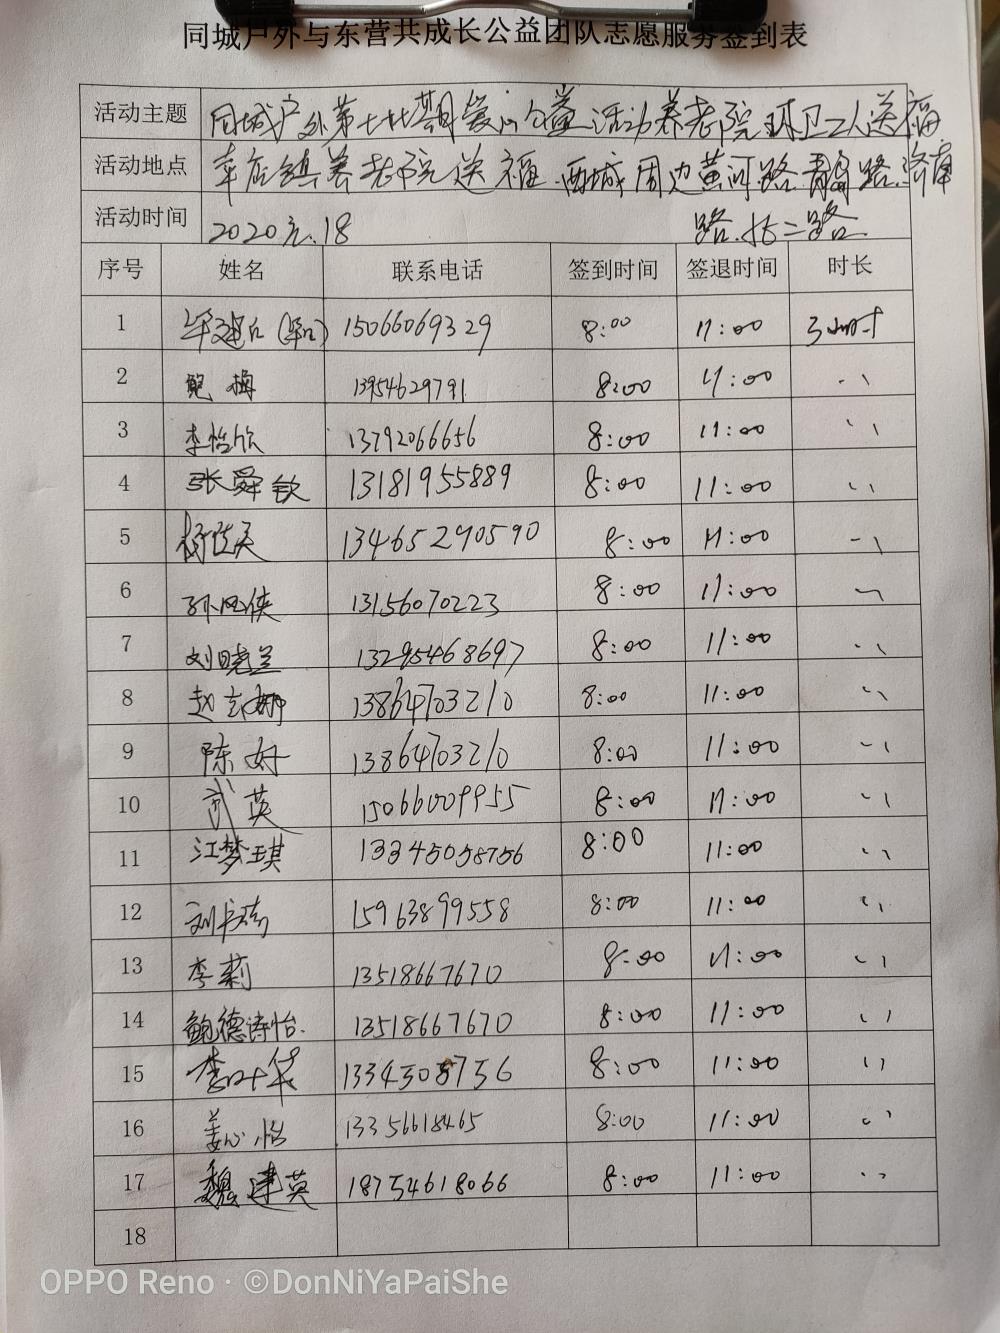 同城户外与东营共成长公益团队志愿服务签到表
活动主题 同城户外第七十七期爱心公益活动养老院环卫工人送福
活动地点 车店镇养老院送福.西城周边黄河路.青岛路.济南
活动时间 2020元.18 路.北二路
序号 姓名 联系电话 签到时间 签退时间 时长
1 15066069329 8:00 11:00 3小时
2 鲍梅 13954629791 8:00 11:00 〃
3 李怡欣 13792066656 8:00 11:00 〃
4 张舜钦 13181955889 8:00 11:00 〃
5 13465290590 8:00 11:00 〃
6 孙凤侠 13156070223 8:00 11:00 〃
7 刘晓兰 13295468697 8:00 11:00 〃
8 赵云娜 13864703210 8:00 11:00 〃
9 陈好 13864703210 8:00 11:00 〃
10 武英 15066009955 8:00 11:00 〃
11 江梦琪 13345058756 8:00 11:00 〃
12 15963899558 8:00 11:00 〃
13 李莉 13518667670 8:00 11:00 〃
14 鲍德诗怡. 13518667670 8:00 11:00 〃
15 李叶华 8:00 11:00 〃
16 姜心怡 13356618465 8:00 11:00 〃
17 魏建英 18754618066 8:00 11:00 〃
18
OPPO Reno · ©DonNiYaPaiShe